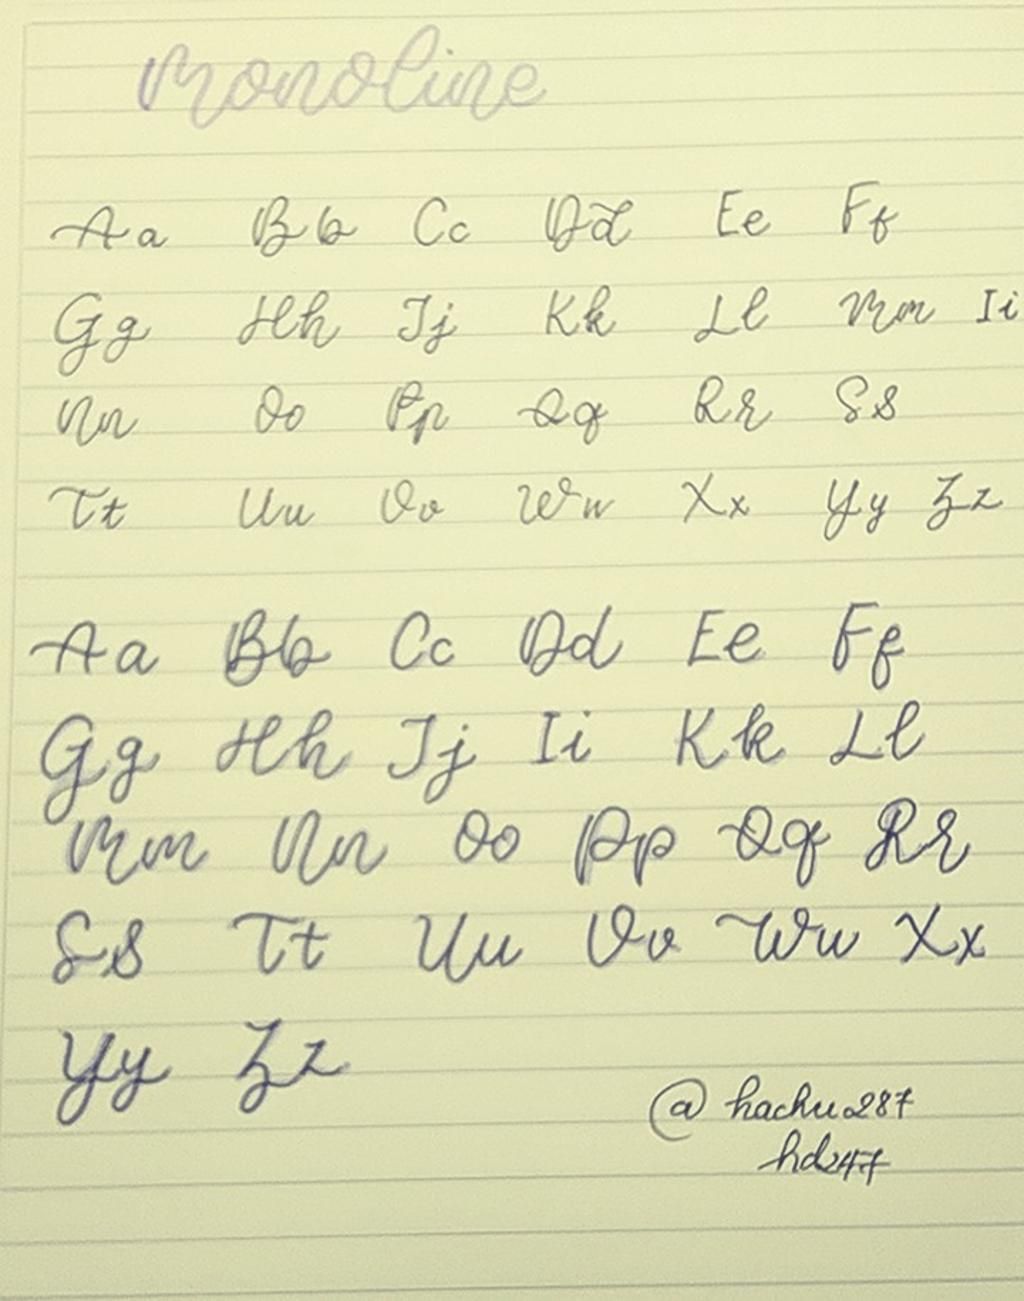 monoline
Aa Bb Cc Dd Ee Ff
Gg Hh Jj Kk Ll Mm Ii
Nn Oo Pp Qq Rr Ss
Tt Uu Vv Ww Xx Yy Zz
Aa Bb Cc Dd Ee Ff
Gg Hh Jj Ii Kk Ll
Mm Nn Oo Pp Qq Rr
Ss Tt Uu Vv Ww Xx
Yy Zz
@hachu287
hd247